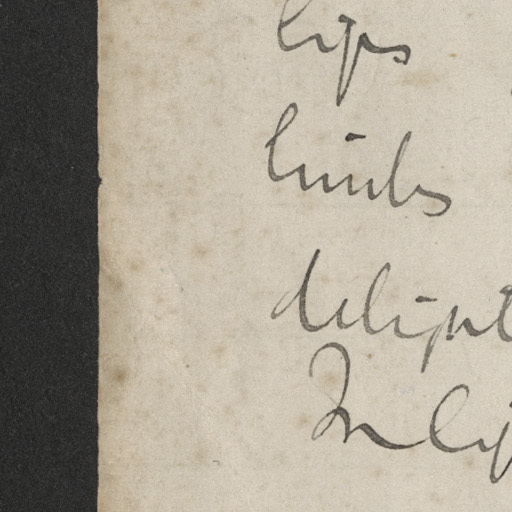 lips
limbs
delight